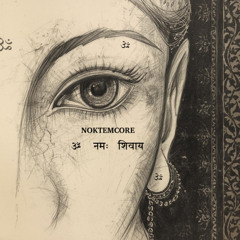 ॐ
ॐ
NOKTEMCORE
ॐ नमः शिवाय
ॐ